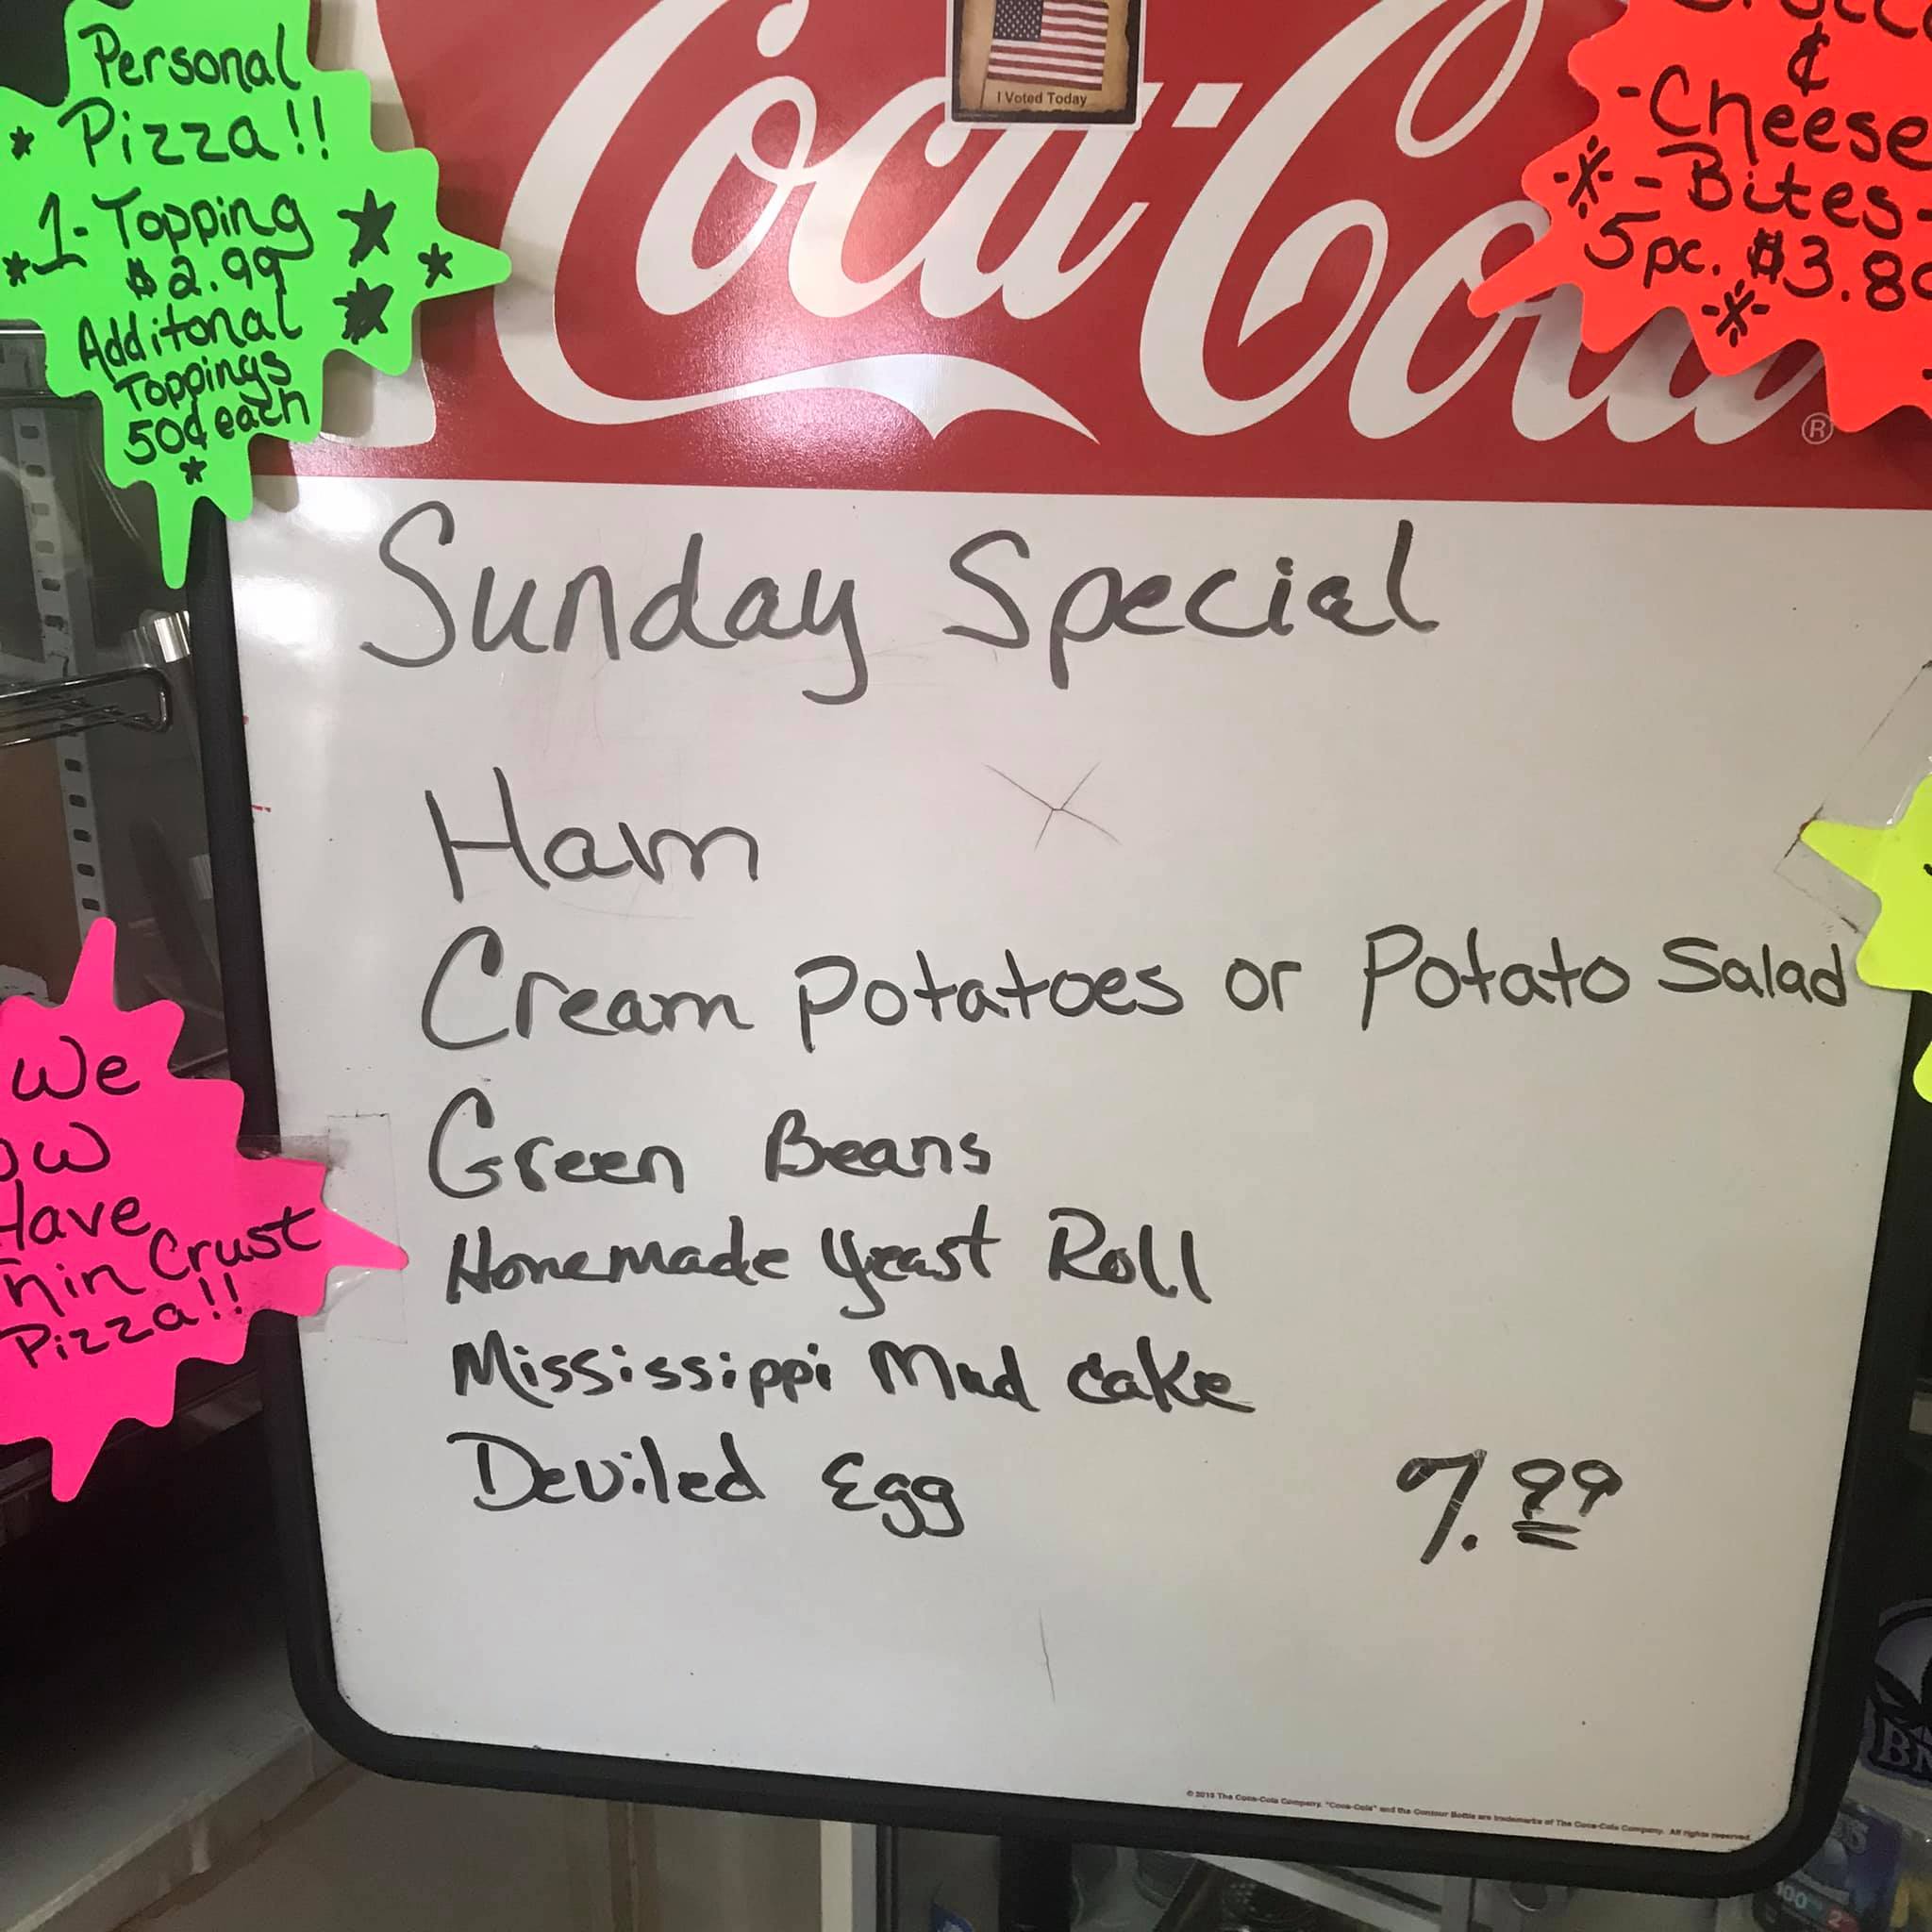 Personal
Pizza!!
1-Topping
$2.99
Additonal
Toppings
50¢ each
Coca-Cola
®
I Voted Today
&
-Cheese
-Bites-
5pc. $3.89
Sunday Special
Ham
Cream Potatoes or Potato Salad
Green Beans
Homemade Yeast Roll
Mississippi Mud Cake
Deviled Egg 7.99
We
ow
Have
hin Crust
Pizza!!
© 2015 The Coca-Cola Company. "Coca-Cola" and the Contour Bottle are trademarks of The Coca-Cola Company. All rights reserved.
100